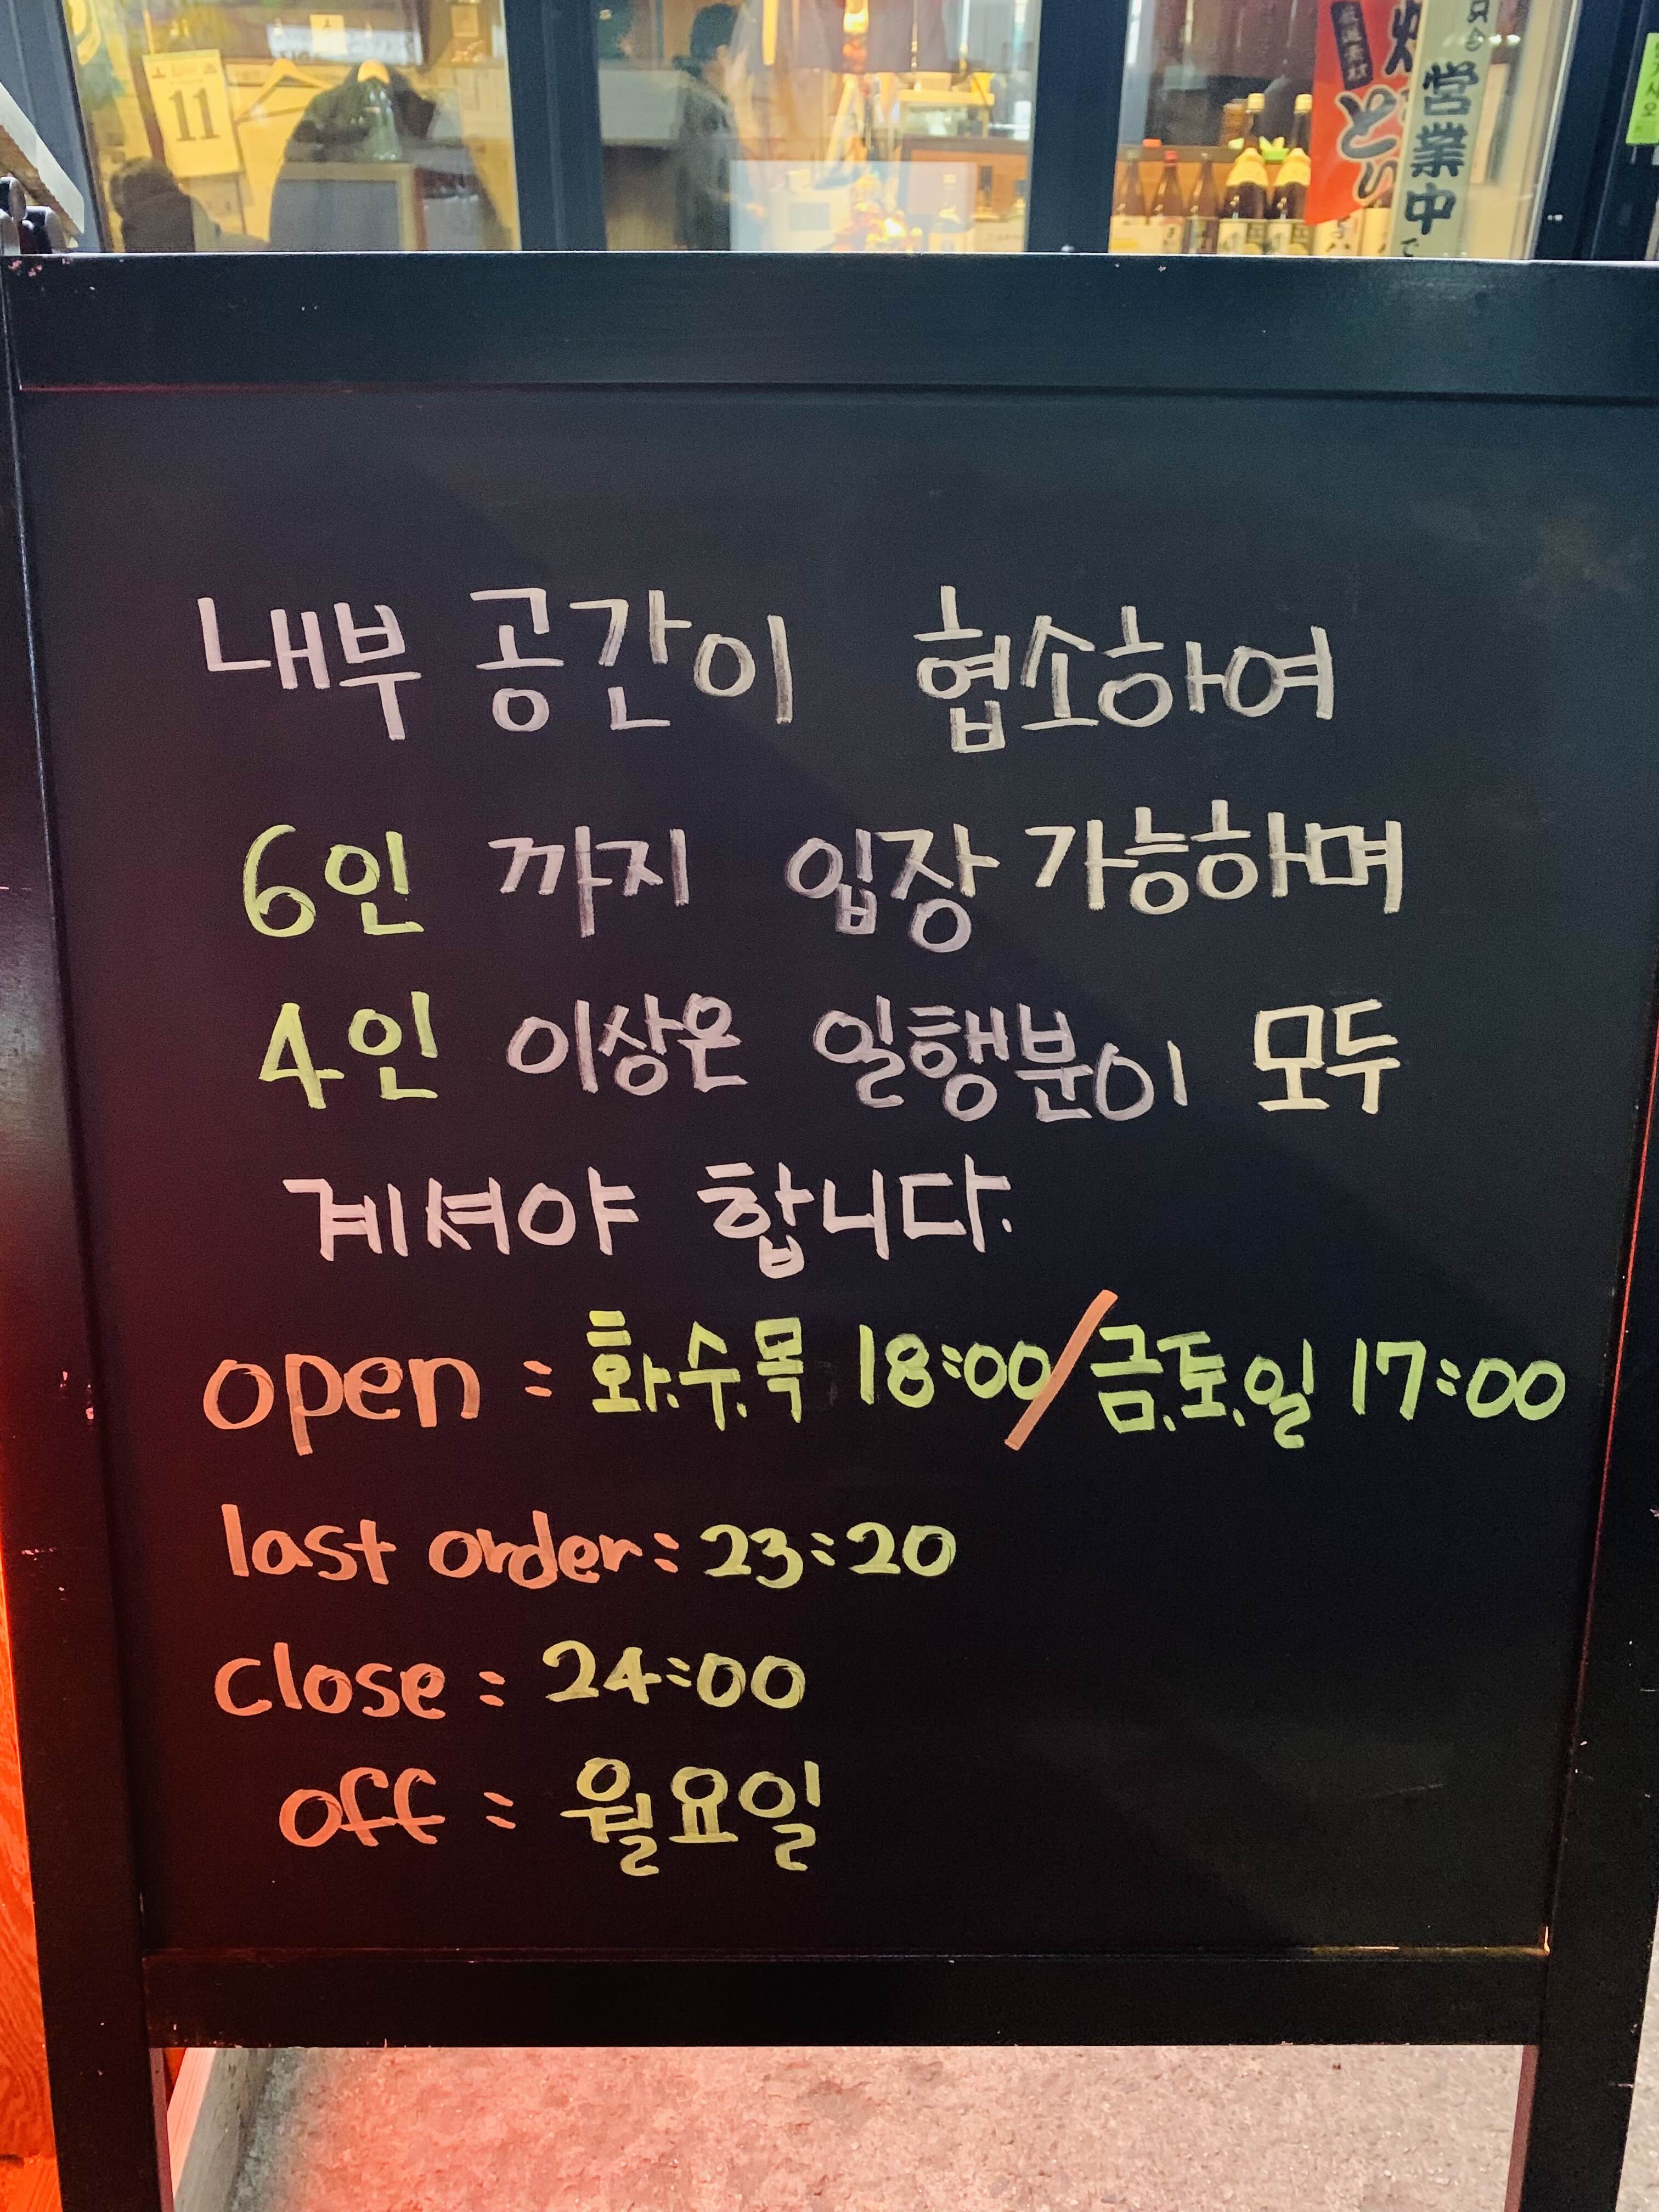 11
営業中
내부 공간이 협소하여
6인 까지 입장 가능하며
4인 이상은 일행분이 모두
계셔야 합니다.
open : 화.수.목 18:00/금.토.일 17:00
last order: 23:20
close : 24:00
off : 월요일